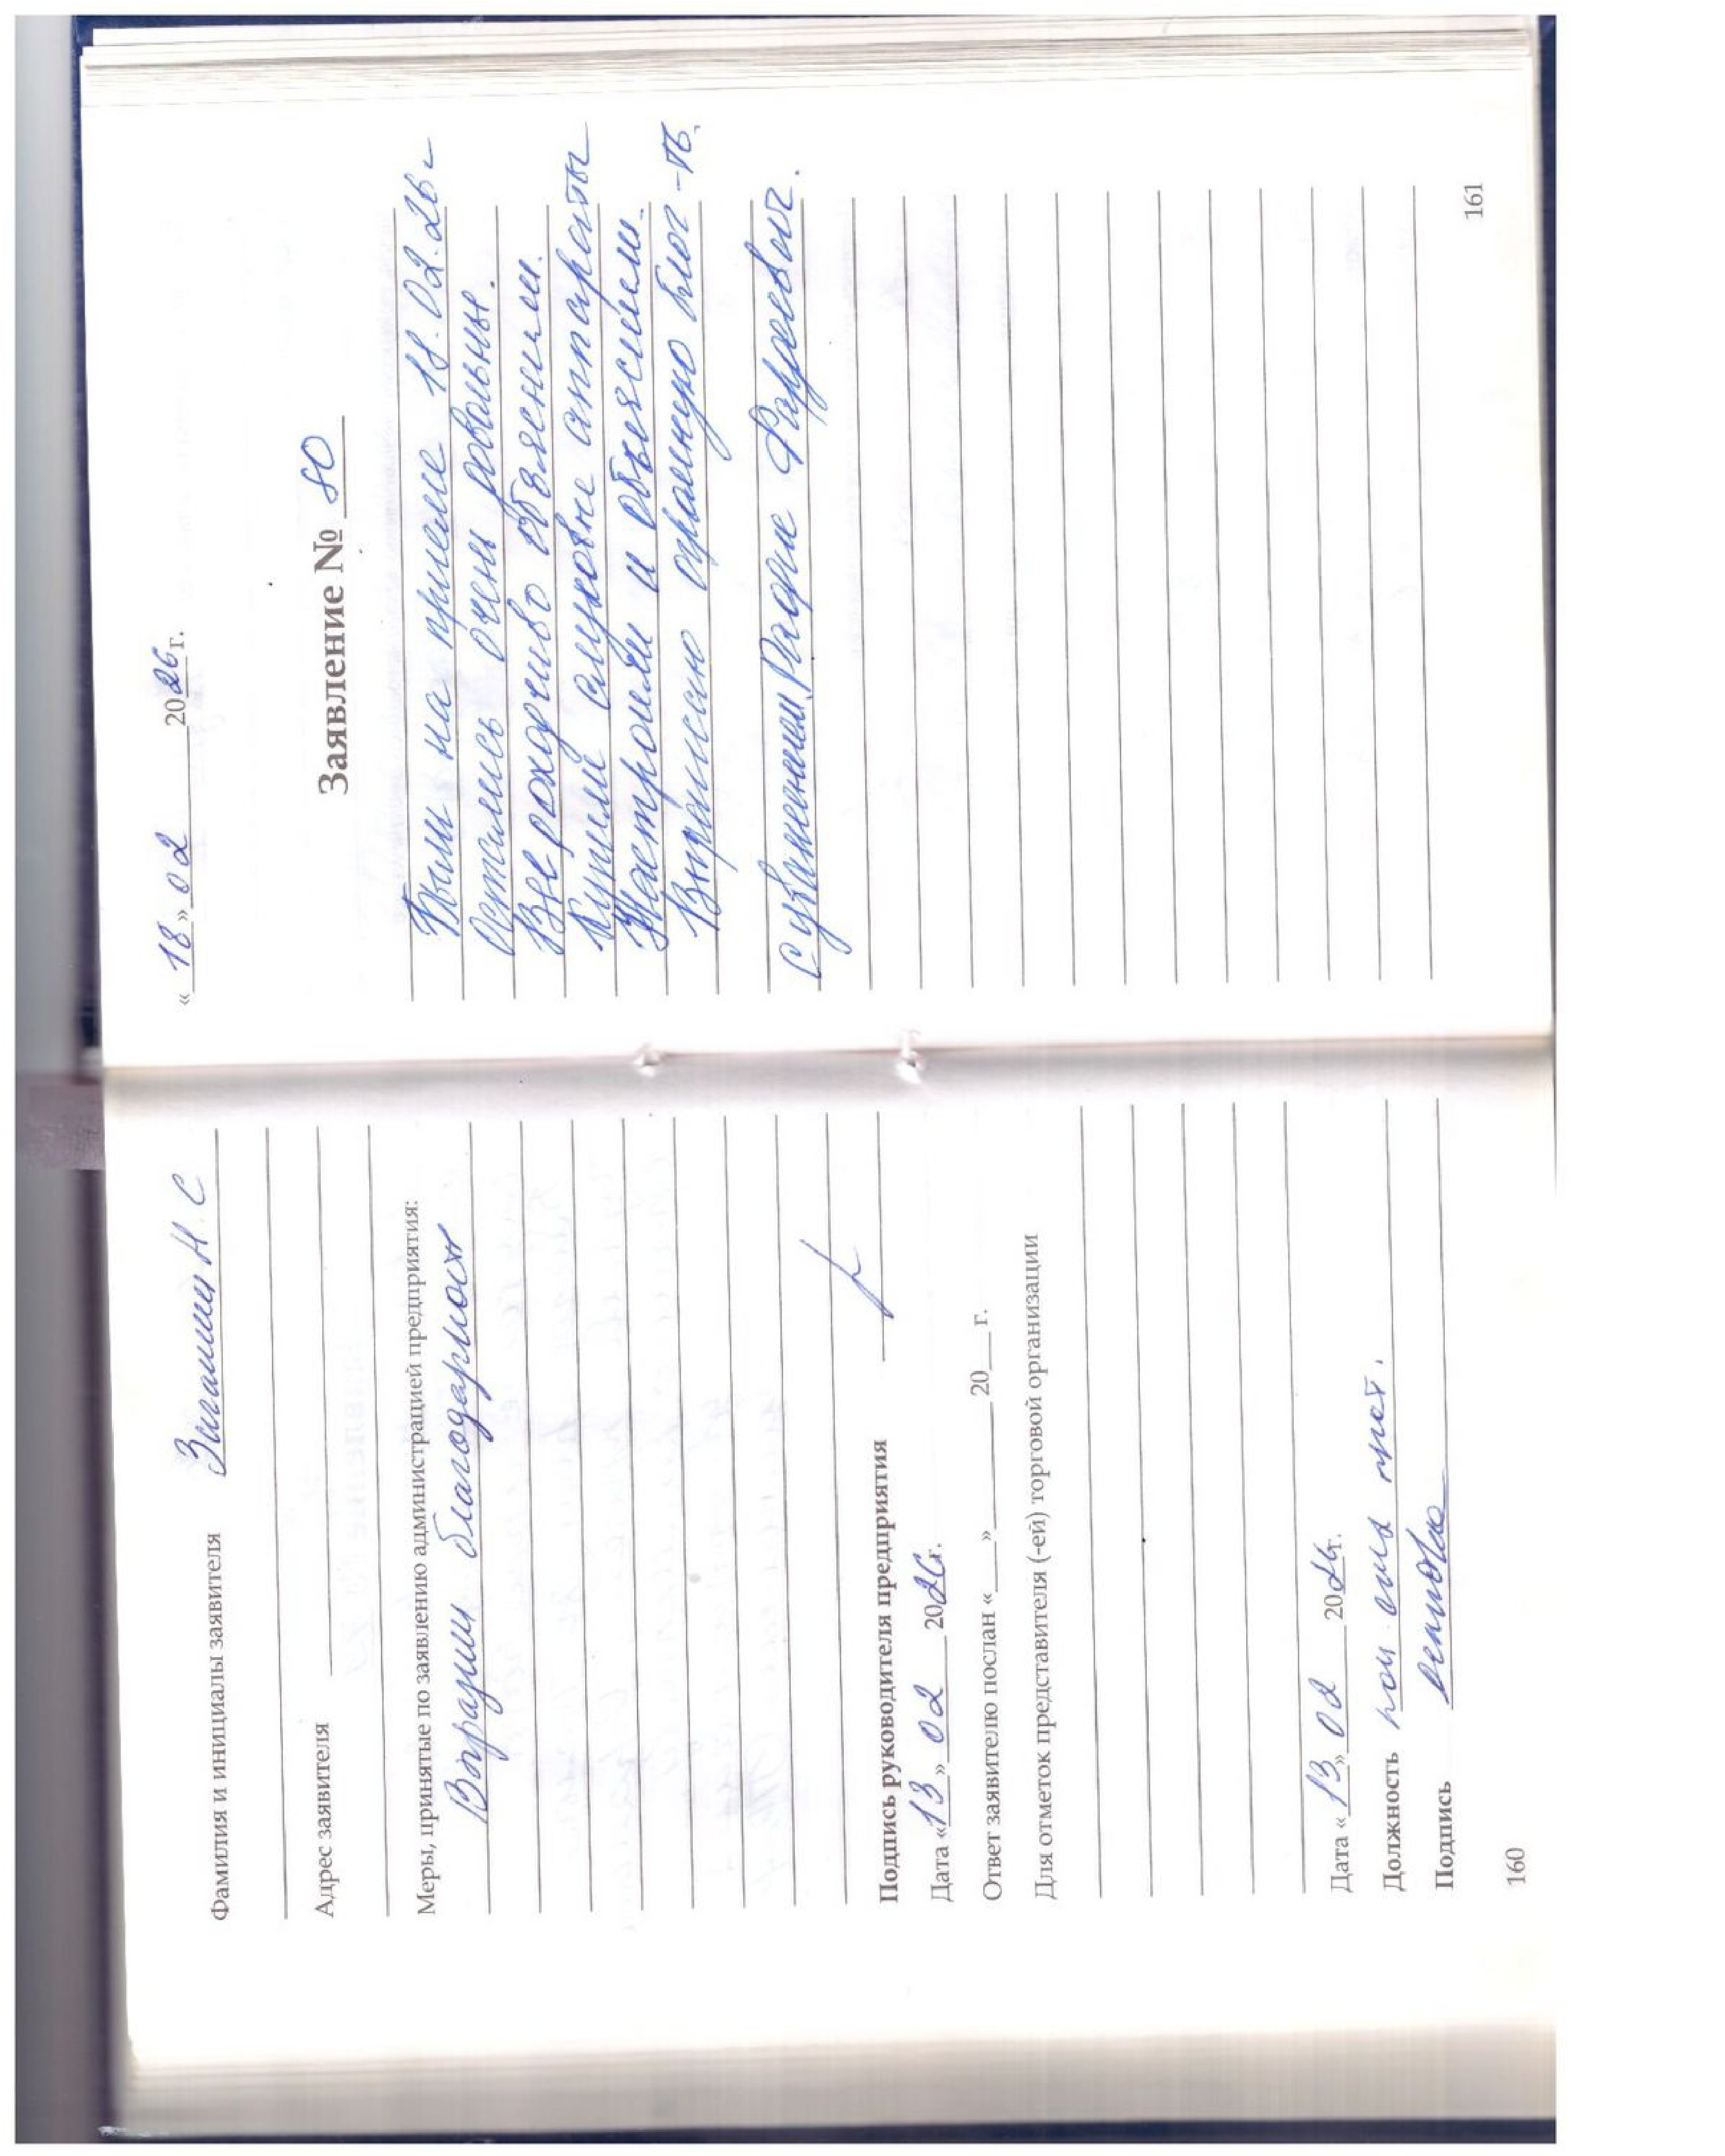 Фамилия и инициалы заявителя Зигашин Н. С
Адрес заявителя
Меры, принятые по заявлению администрацией предприятия:
Выразим благодарност
Подпись руководителя предприятия
Дата «13» 02 2026г.
Ответ заявителю послан «___»________20___г.
Для отметок представителя (-ей) торговой организации
Дата «13» 02 2026г.
Должность
Подпись
160
«18» 02 2026г.
Заявление № 80
Были на приеме 18.02.26г
Остались очень довольны.
Все доходчиво обяснили.
Купили слуховые аппараты
Настроили и объяснили.
Выражаю огромную благ-ть.
С уважением, Рафис Фаритович.
161